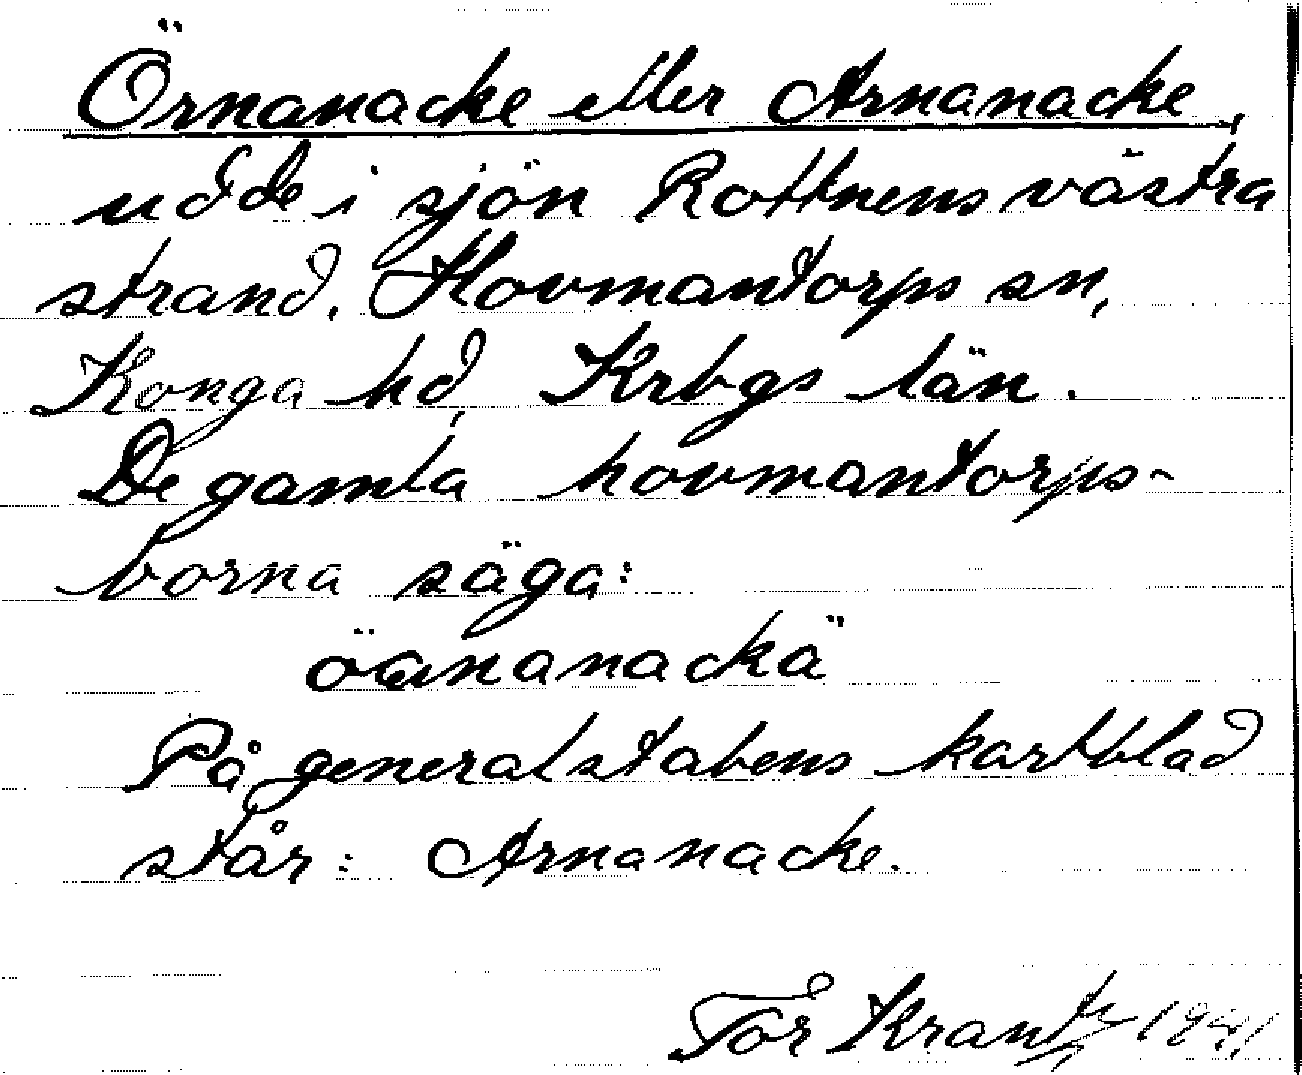 Örnanacke eller Arnanacke,
udde i sjön Rottnens västra
strand. Hovmantorps sn,
Konga hd, Krbgs län.
De gamla hovmantorps-
borna säga:
öananackä
På generalstabens kartblad
står: Arnanacke.
Tor Krantz 1941